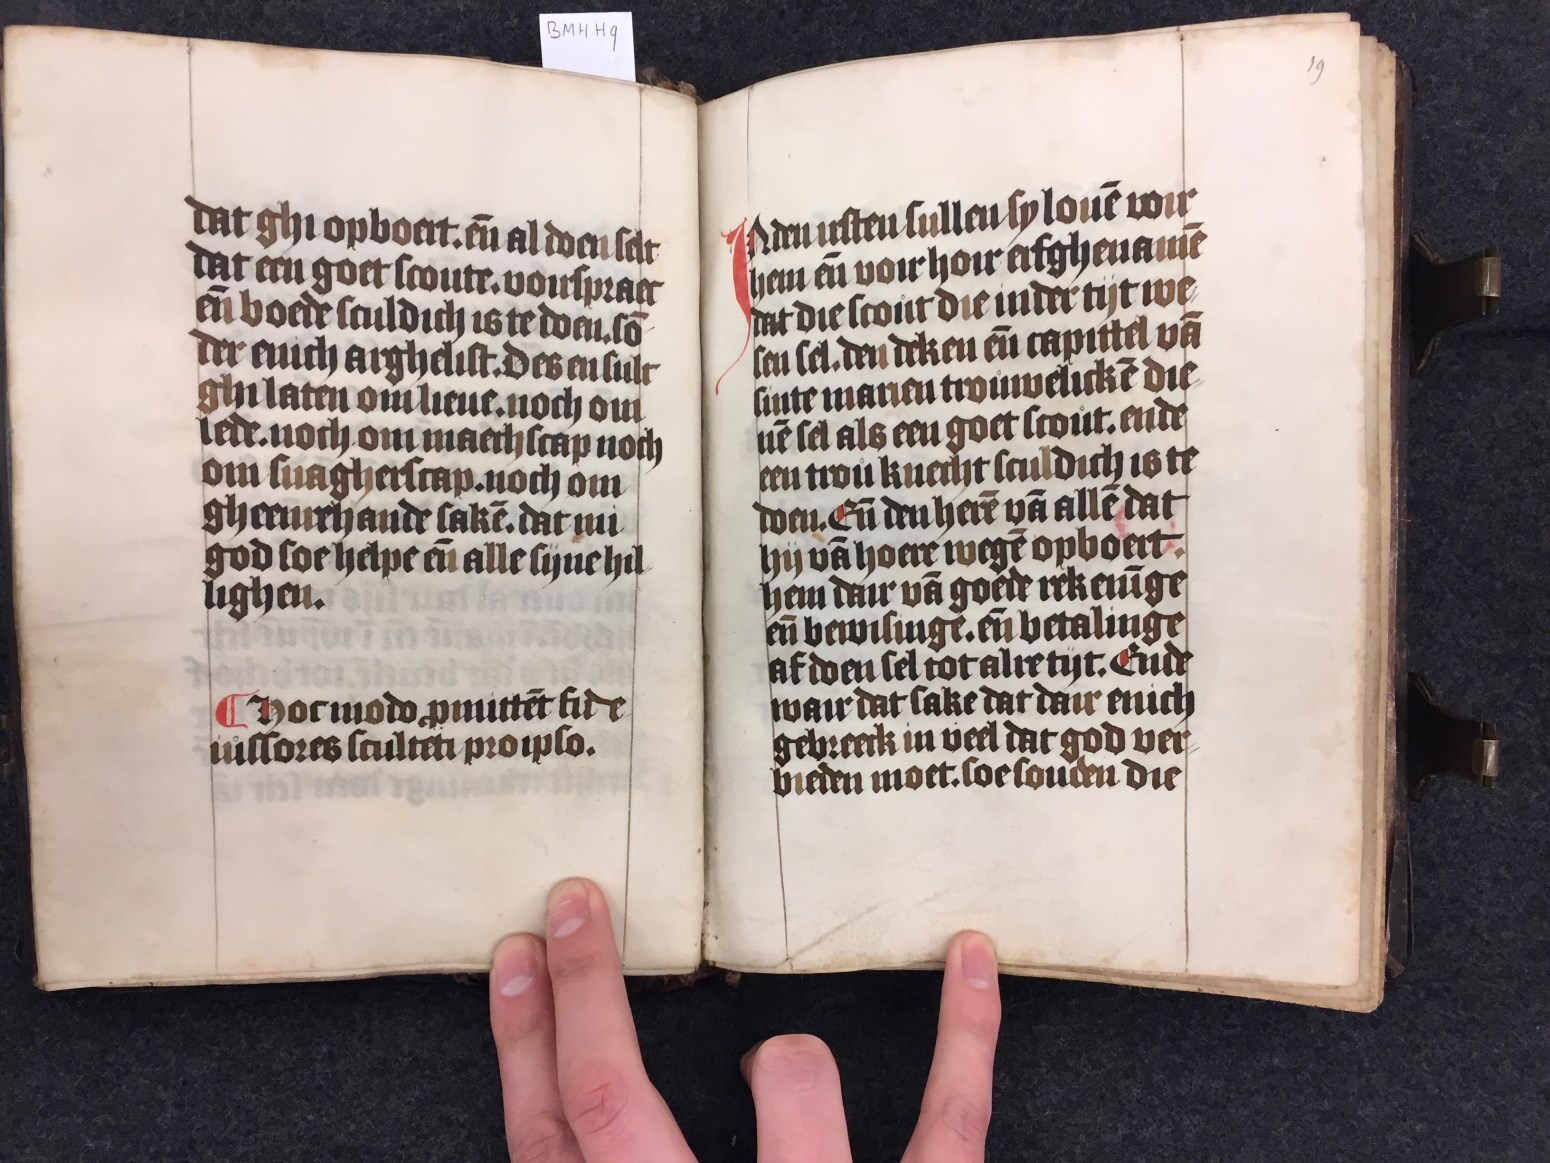 BMH H9
dat ghi opboert. en̄ al doen selt
dat een goet scoute. voirspraec
en̄ boede sculdich is te doen. sō
der enich arghelist. Des en sult
ghi laten om lieue. noch om
lede. noch om maechscap noch
om suagherscap. noch om
gheenrehande sakē. dat mi
god soe helpe en̄ alle sijne hil
lighen.
Hoc modo ꝓmittēt fide
iussores sculteti pro ipso.
19
INden irsten sullen sy louē voir
hem en̄ voir hoir erfghenamē
dat die scout die inder tijt we-
sen sel. den deken en̄ capittel vā
sinte marien trouwelickē die-
nē sel als een goet scout. ende
een trou knecht sculdich is te
doen. En̄ den herē vā allē dat
hij vā hoere wegē opboert.
hem dair vā goede rekenīge
en̄ bewisinge. en̄ betalinge
af doen sel tot alre tijt. Ende
wair dat sake dat dair enich
gebreeck in veel dat god ver-
bieden moet. soe souden die